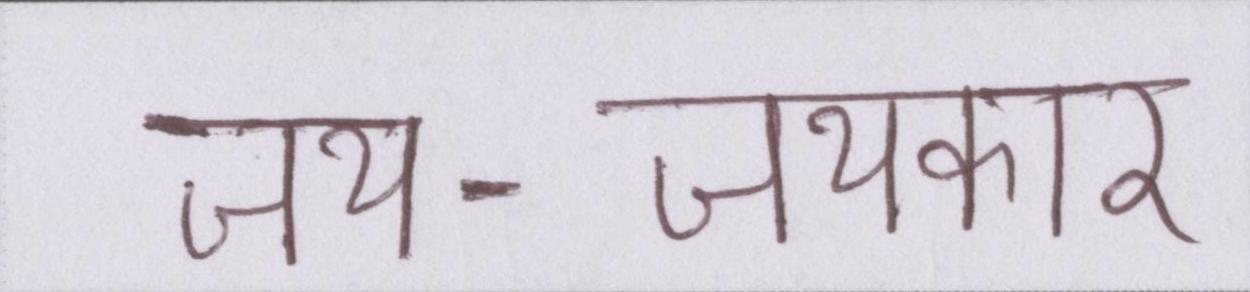 जय- जयकार